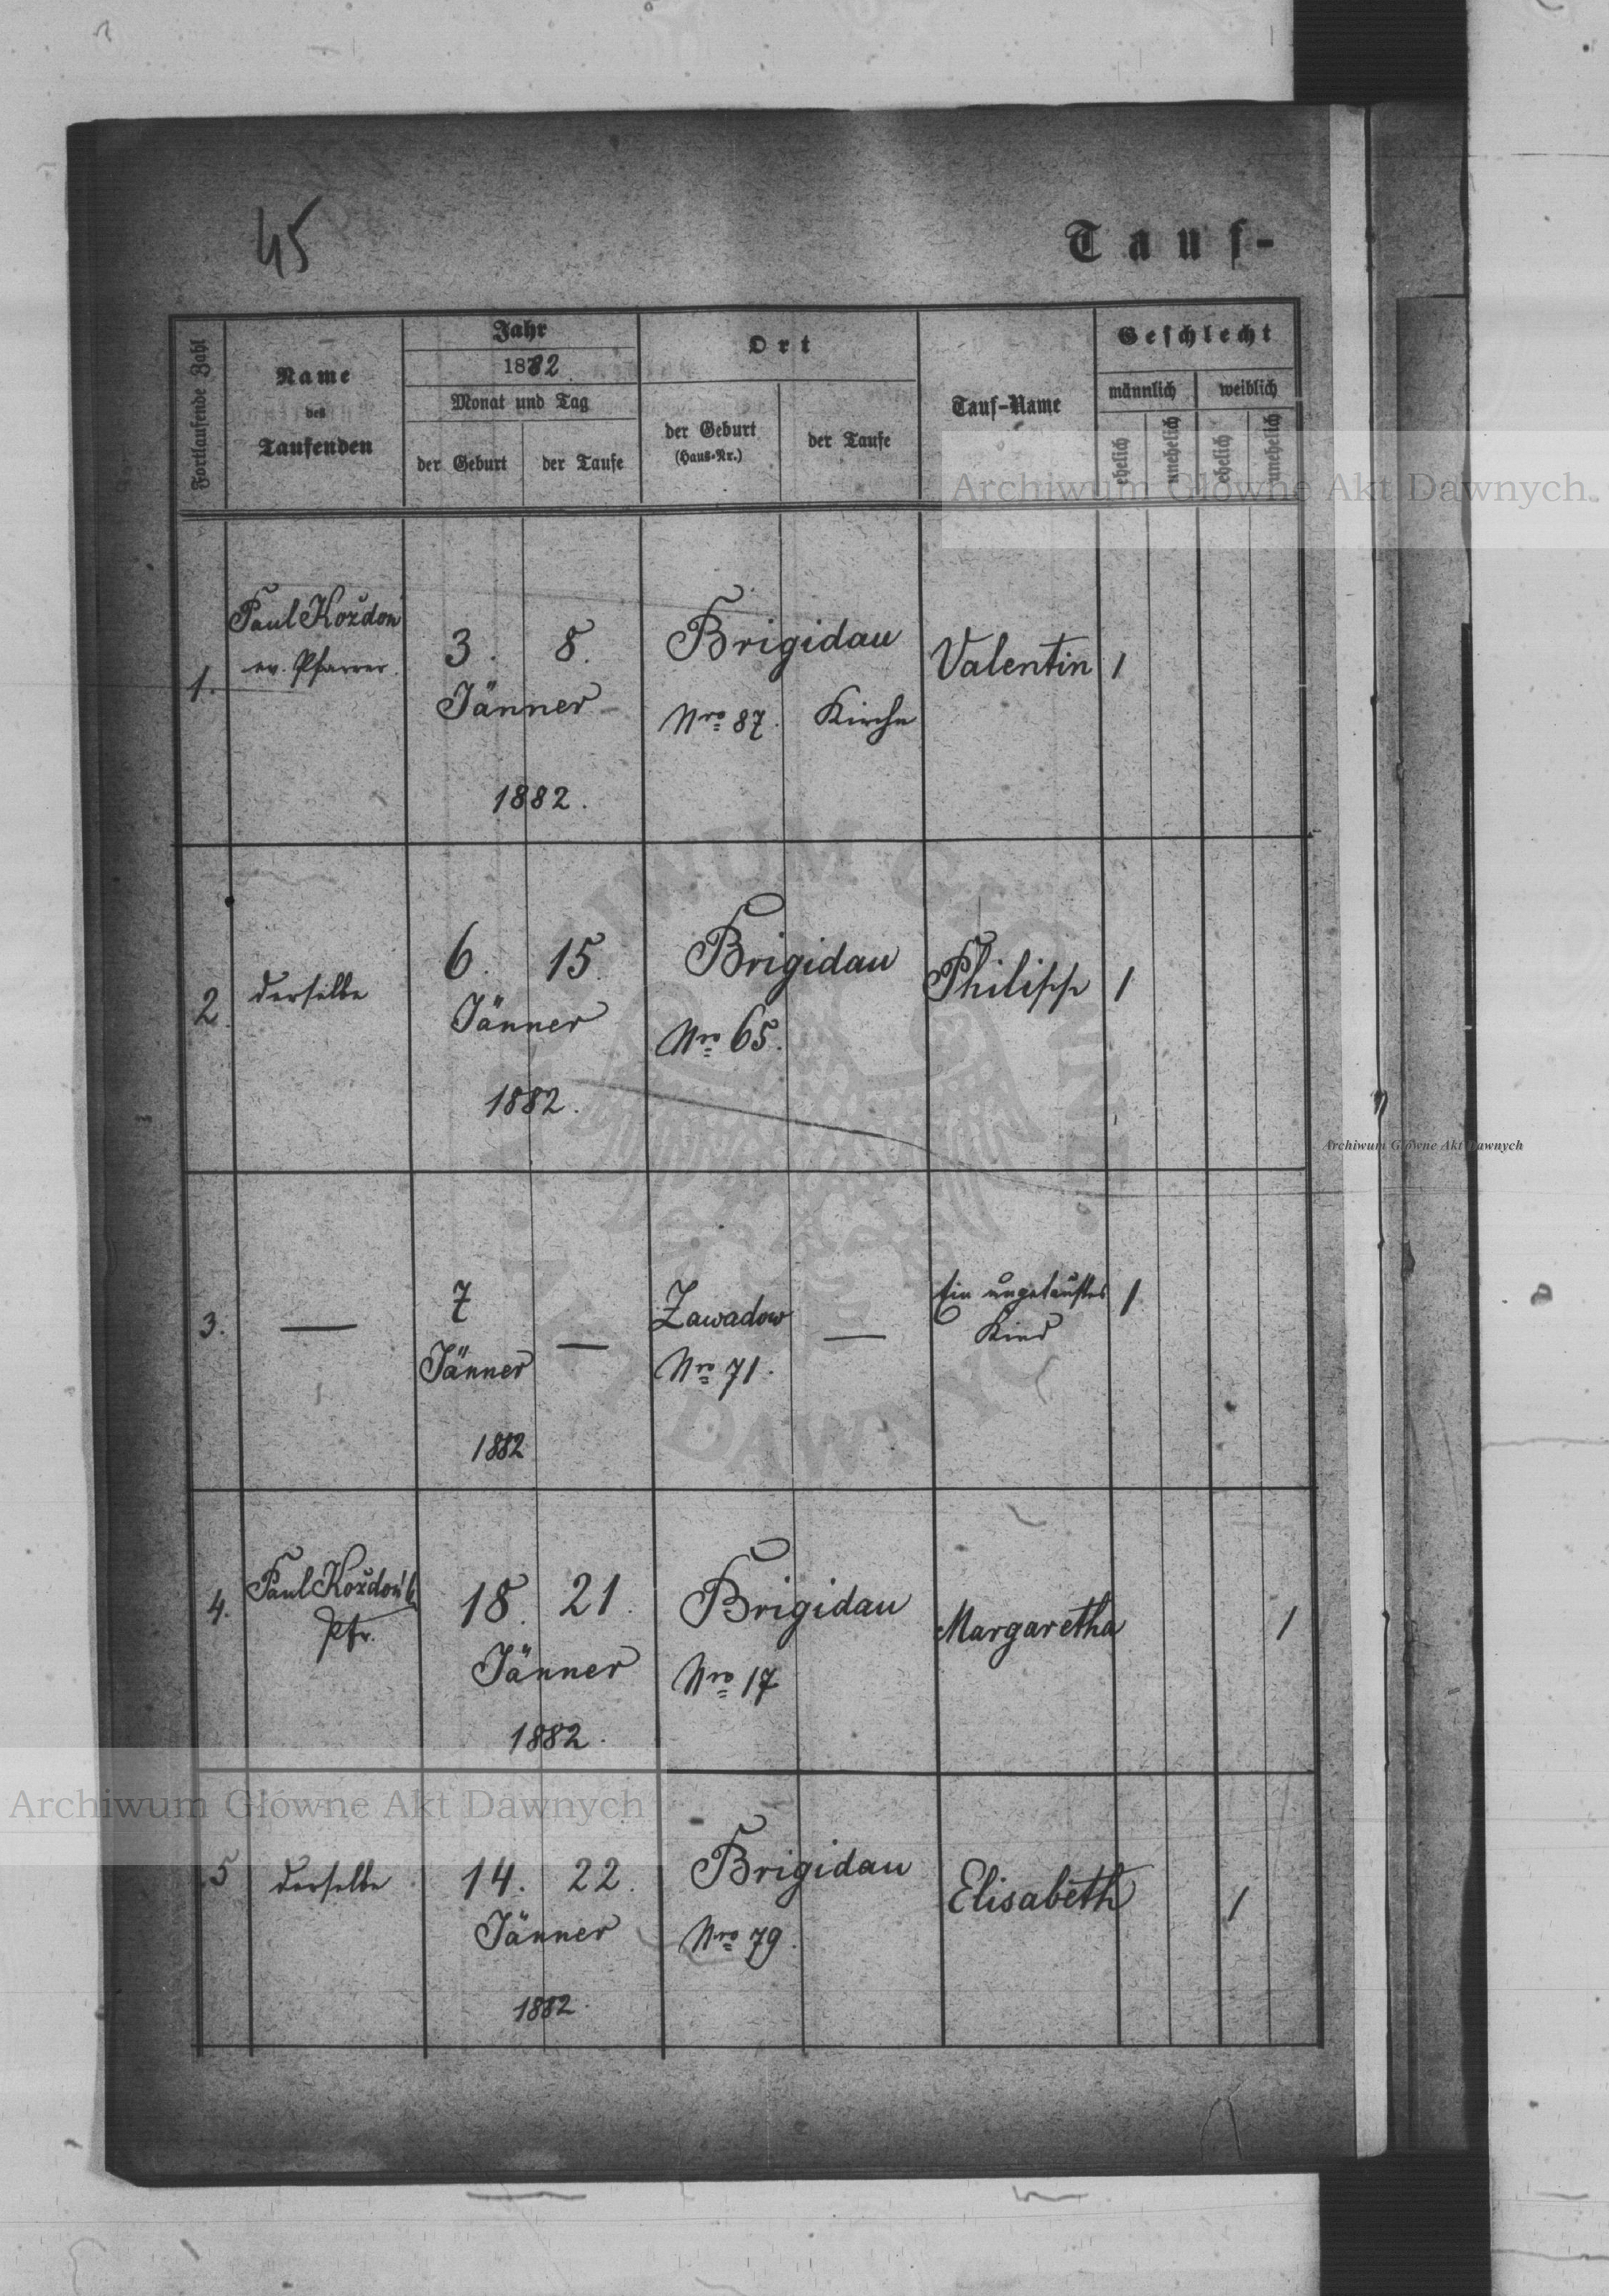 45
Tauf-
Fortlaufende Zahl
Name
des
Taufenden
Jahr
1882
Monat und Tag
der Geburt
der Taufe
Ort
der Geburt
(Haus-Nr.)
der Taufe
Tauf-Name
Geschlecht
männlich
weiblich
ehelich
unehelich
ehelich
unehelich
Archiwum Główne Akt Dawnych
1.
Paul Koždoń
ev. Pfarrer.
3. 8.
Jänner
1882.
Brigidau
Nro 87. Kirche
Valentin
1
2.
derselbe
6. 15.
Jänner
1882.
Brigidau
Nro 65.
Philipp
1
Archiwum Główne Akt Dawnych
3.
—
7
Jänner
—
1882
Zawadow
Nro 71.
—
Ein ungetauftes
Kind
1
4.
Paul Koždoń
Pfr.
18. 21.
Jänner
1882.
Brigidau
Nro 17
Margaretha
1
Archiwum Główne Akt Dawnych
5
derselbe
14. 22.
Jänner
1882.
Brigidau
Nro 79.
Elisabeth
1
ARCHIWUM GŁÓWNE AKT DAWNYCH